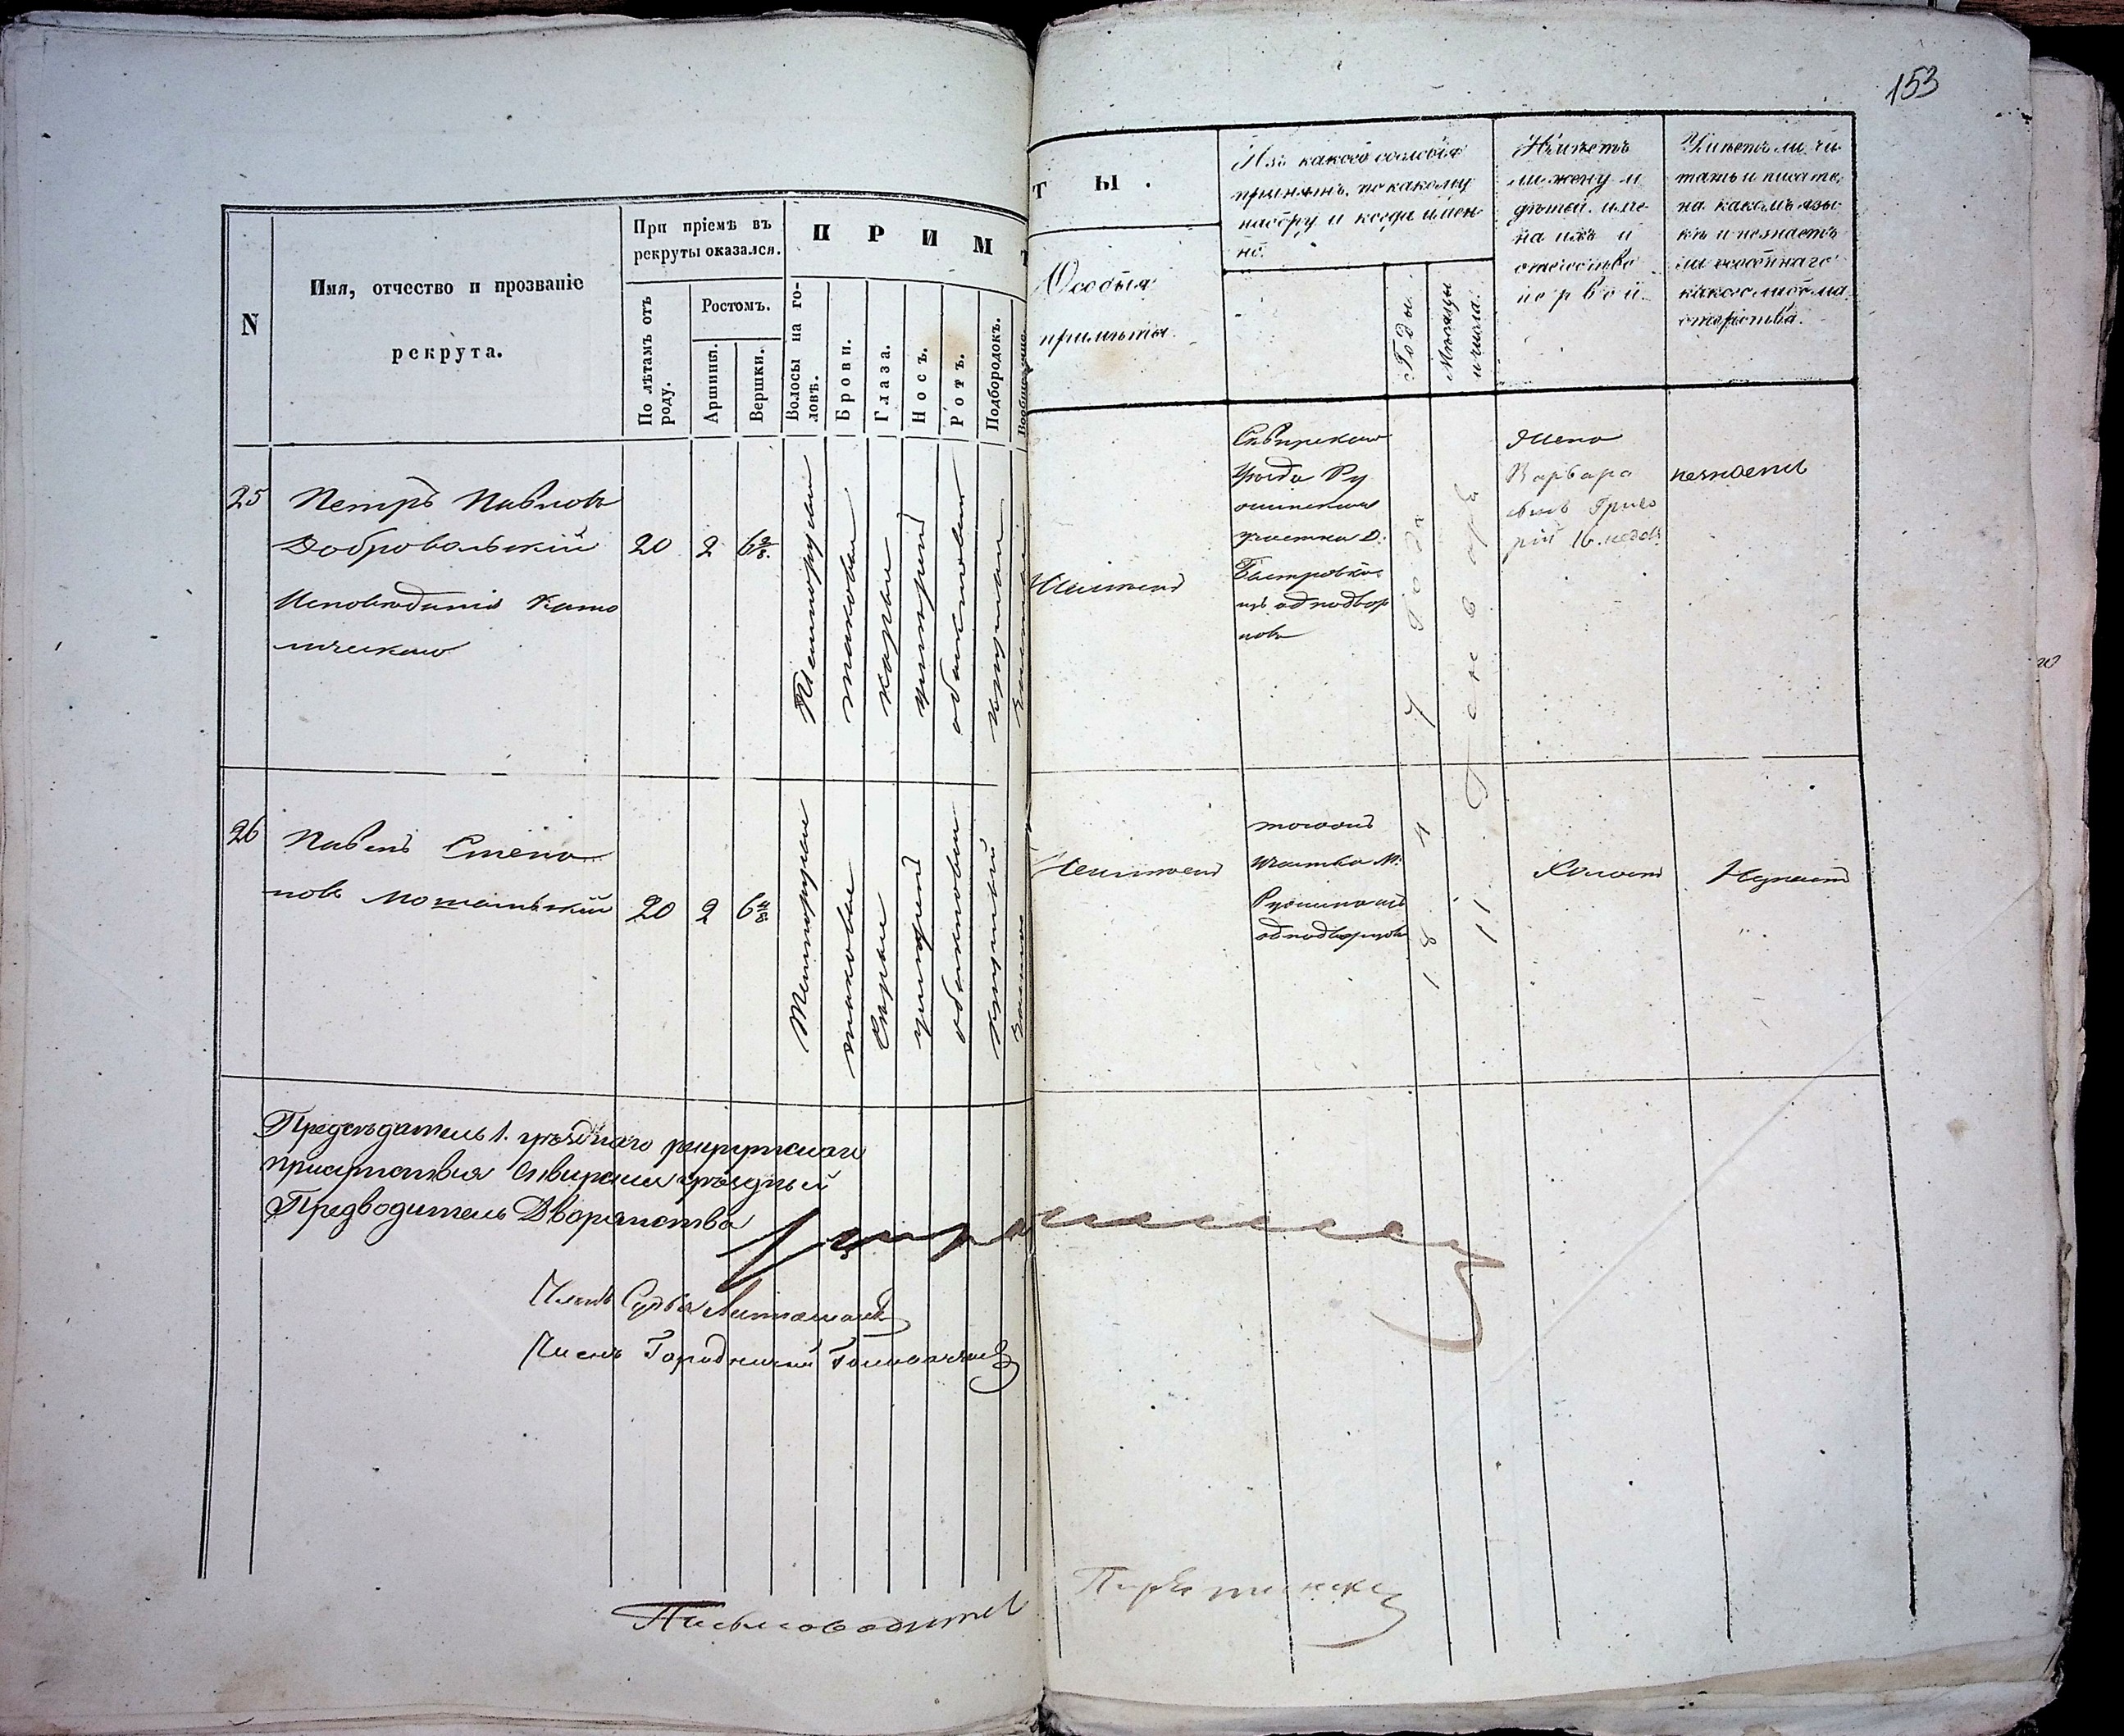 153
N
Имя, отчество и прозваніе
рекрута.
При пріемѣ въ
рекруты оказался.
По лѣтамъ отъ
роду.
Ростомъ.
Аршины.
Вершки.
П Р И М Ѣ
Волосы на го-
ловѣ.
Брови.
Глаза.
Носъ.
Ротъ.
Подбородокъ.
Т Ы.
Особыя
примѣты.
Изъ какого сословія
принятъ, по какому
набору и когда имен
но.
Годы.
Мѣсяцы
и числа.
Имѣетъ
ли жену и
дѣтей, име
на ихъ и
отечество
первой.
Умѣетъ ли чи
тать и писать,
на какомъ язы
кѣ и не знаетъ
ли особеннаго
какого либо ма
стерства.
25
Петръ Павловъ
Добровольскій
Исповѣданія Като
лическаго
20
2
6 2/8.
Темнорусые
таковые
карые
умѣрен
обыкновен
круглый
Неимѣетъ
Сквирскаго
Уѣзда Ру
жинскаго
участка д.
изъ однодвор
цовъ
Жена
Варвара
сынъ Григо
рій 16. недѣль
незнаетъ
26
Павелъ Степа
новъ
20
2
6 4/8
Темнорусые
таковые
Сѣрые
умѣрен
обыкновен
круглый
Неимѣетъ
тогожъ
участка М.
Ружина изъ
однодворцовъ
1847 года
11 Генваря
Холостъ
Незнаетъ
Предсѣдатель 1. уѣзднаго рекрутскаго
присутствія Сквирскій уѣздный
Предводитель Дворянства
Членъ Судья
Членъ Городничій
Письмоводитель